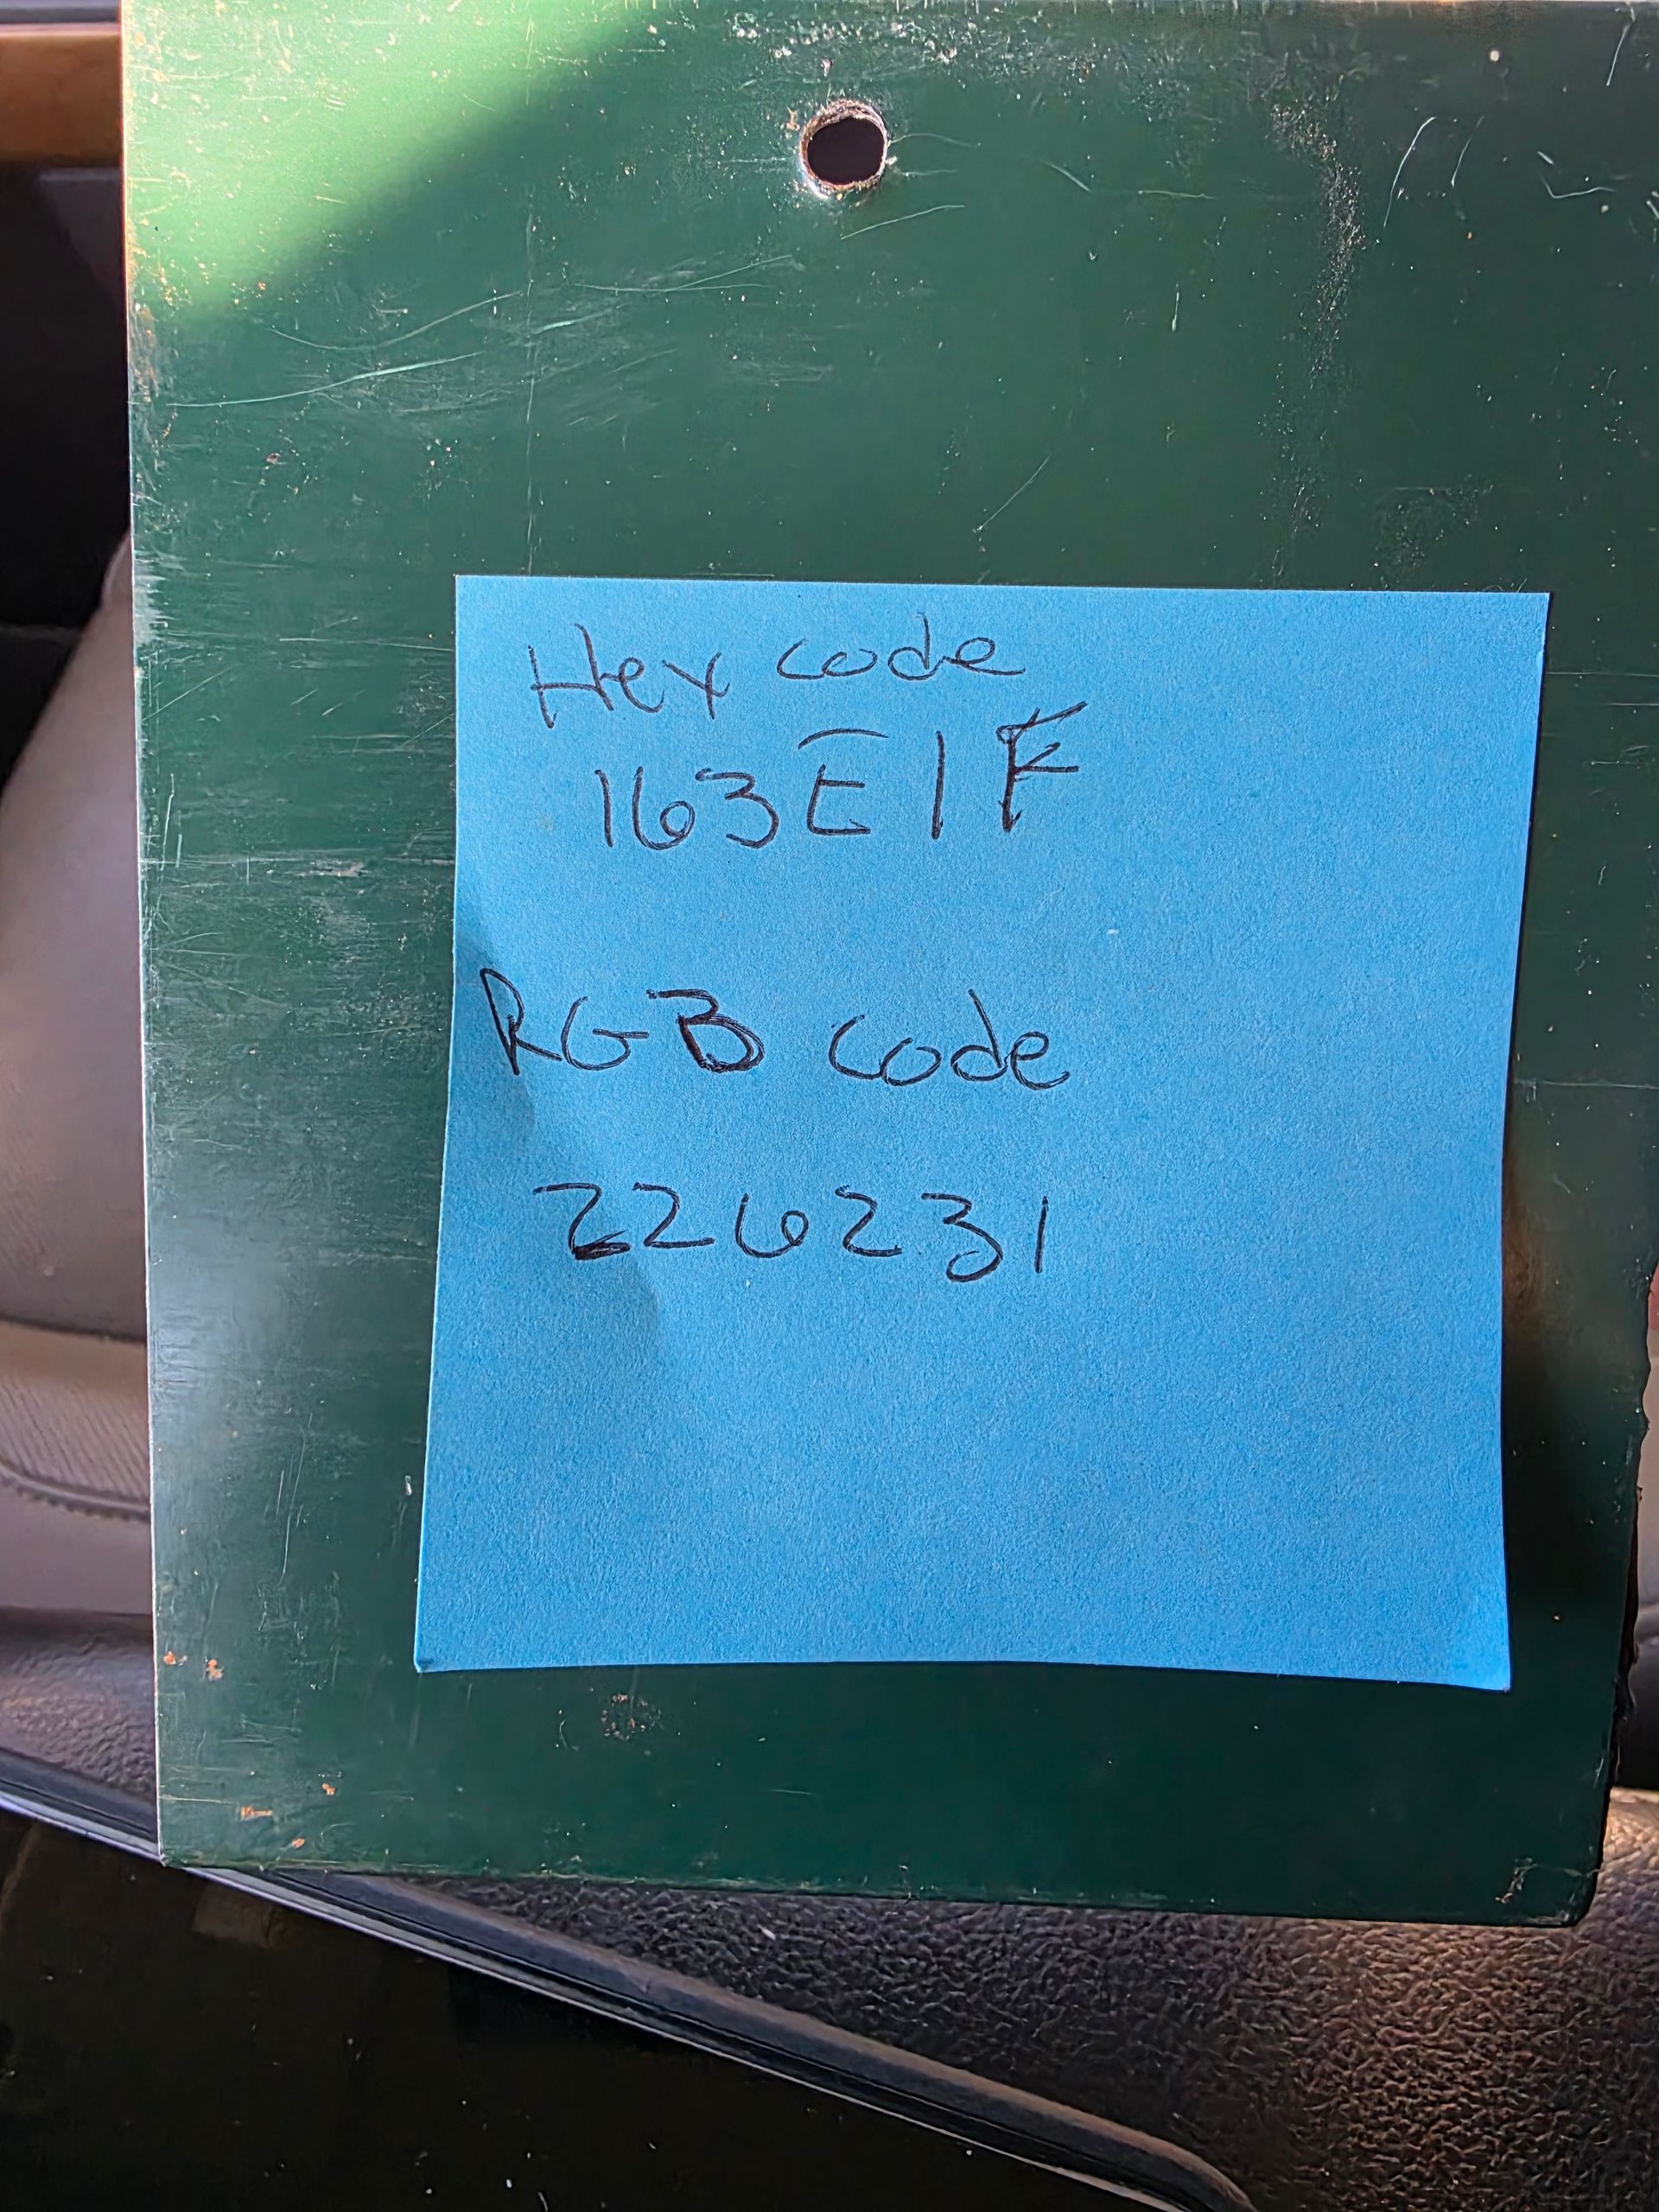 Hex code
163E1F
RGB code
226231